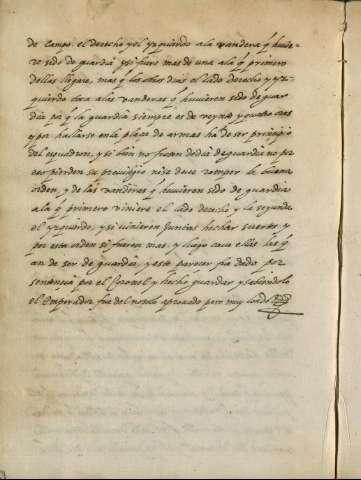 de campo. el derecho y el yzquierdo ala vandera q̃ huvie-
re sido de guardia y si fuere mas de una ala q̃ primero
dellas llegare, mas q̃ los otros dias el lado derecho y yz-
quierdo toca alas vanderas q̃ huvieren sido de guar
dia pa q̃ la guardia siempre es de veynte y quatro oras
y por hallarse en la plaça de armas ha de ser principio
del esquadron, y si bien no fuesen de dia de guardia no por
eso pierden su previlegio ni se deve romper la buena
orden, y de las vanderas q̃ huvieren sido de guardia
ala q̃ primero viniere el lado derecho y la segunda
el yzquierdo, y si vinieren juntas hechar suertes, y
por esta orden si fueren mas, y luego entre ellas las q̃
an de ser de guardia, y este parecer fue dado por
sentencia por el Coronel y hecho guardar y sabiendolo
el Emperador fue del no solo aprovado pero muy loado